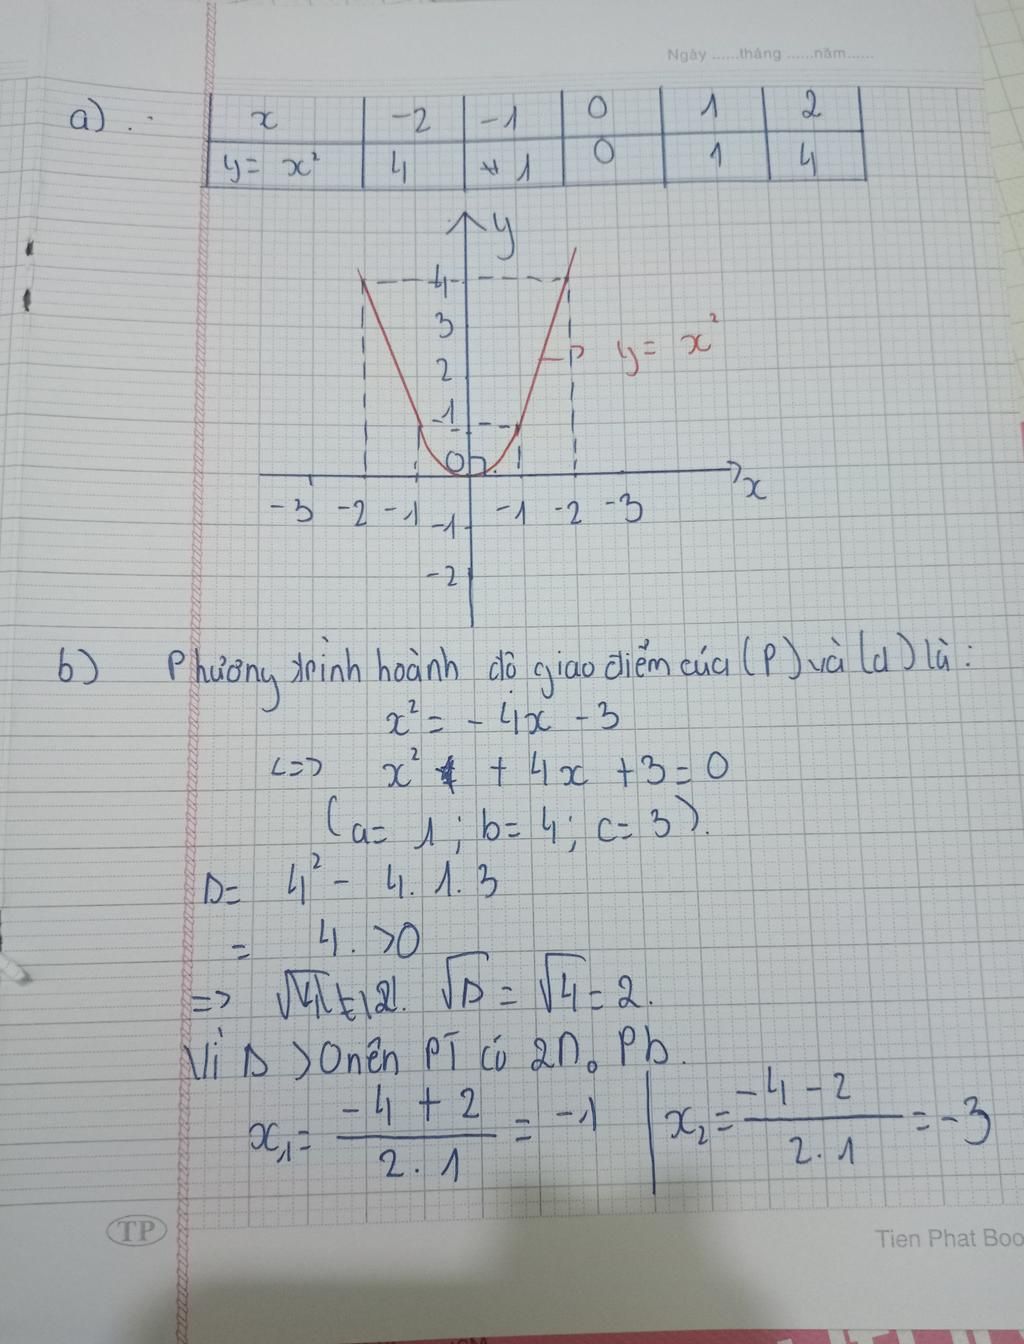 Ngày ......tháng ......năm......
a) :
x -2 -1 0 1 2
y = x² 4 1 0 1 4
y
4
3
2
1
P y = x²
0
x
-3 -2 -1 -1 -2 -3
-1
-2
b) Phương trình hoành độ giao điểm của (P) và (d) là:
x² = - 4x - 3
<=> x² + 4x + 3 = 0
(a = 1 ; b = 4 ; c = 3).
Δ = 4² - 4. 1. 3
= 4. >0
=> √Δ = √4 = 2.
Vì Δ > 0 nên PT có 2 n₀ Pb.
x₁ = (-4 + 2)/(2 . 1) = -1 | x₂ = (-4 - 2)/(2 . 1) = -3
TP
Tien Phat Boo